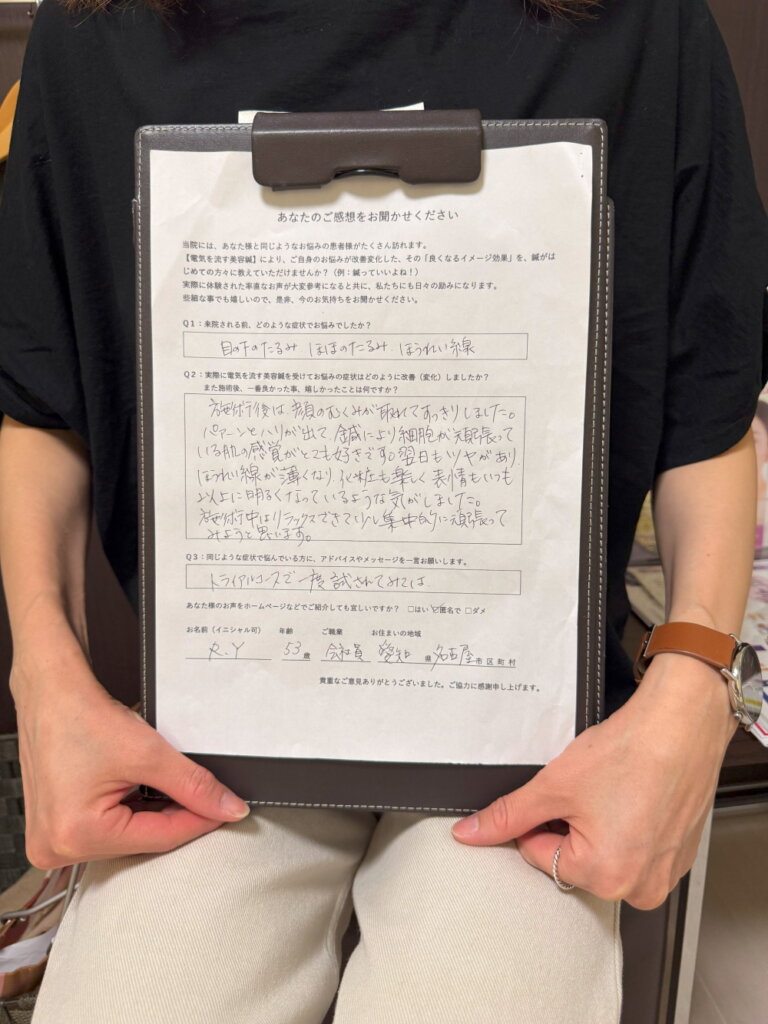 あなたのご感想をお聞かせください
当院には、あなた様と同じようなお悩みの患者様がたくさん訪れます。
【電気を流す美容鍼】により、ご自身のお悩みが改善変化した、その「良くなるイメージ効果」を、鍼がは
じめての方々に教えていただけませんか？（例：鍼っていいよね！）
実際に体験された率直なお声が大変参考になると共に、私たちにも日々の励みになります。
些細な事でも嬉しいので、是非、今のお気持ちをお聞かせください。
Q1：来院される前、どのような症状でお悩みでしたか？
目の下のたるみ ほほのたるみ ほうれい線
Q2：実際に電気を流す美容鍼を受けてお悩みの症状はどのように改善（変化）しましたか？
また施術後、一番良かった事、嬉しかったことは何ですか？
施術後は 顔のむくみが取れてすっきりしました。
パァーンとハリが出て、鍼により細胞が頑張って
いる肌の感覚がとても好きです。翌日もツヤがあり
ほうれい線が薄くなり、化粧も楽しく 表情もいつも
以上に明るくなっているような気がしました。
施術中はリラックスできて少し集中的に頑張って
みようと思います。
Q3：同じような症状で悩んでいる方に、アドバイスやメッセージを一言お願いします。
トライアルコースで 一度試されてみては
あなた様のお声をホームページなどでご紹介しても宜しいですか？ □はい ☑匿名で □ダメ
お名前（イニシャル可） 年齢 ご職業 お住まいの地域
R.Y 53歳 会社員 愛知県 名古屋市区町村
貴重なご意見ありがとうございました。ご協力に感謝申し上げます。